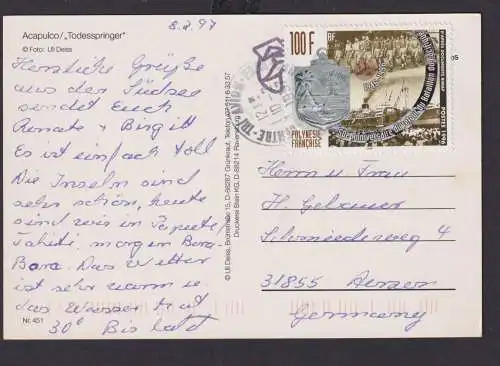 8.2.97
Acapulco/„Todesspringer"
© Foto: Uli Deiss
Herzliche Grüße
aus der Südsee
sendet Euch
Renate + Birgitt
Es ist einfach toll
Die Inseln sind
sehr schön, heute
sind wir in Papeete/
Tahiti, morgen Bora-
Bora. Das Wetter
ist sehr warm u.
das Wasser hat
30° Bis bald
Nr. 451
© Uli Deiss,
Druckerei Stein KG,
100 F
RF
POSTES 1996
POLYNÉSIE
FRANÇAISE
Herrn u. Frau
H.
Schmiedeweg 4
31855 Aerzen
Germany